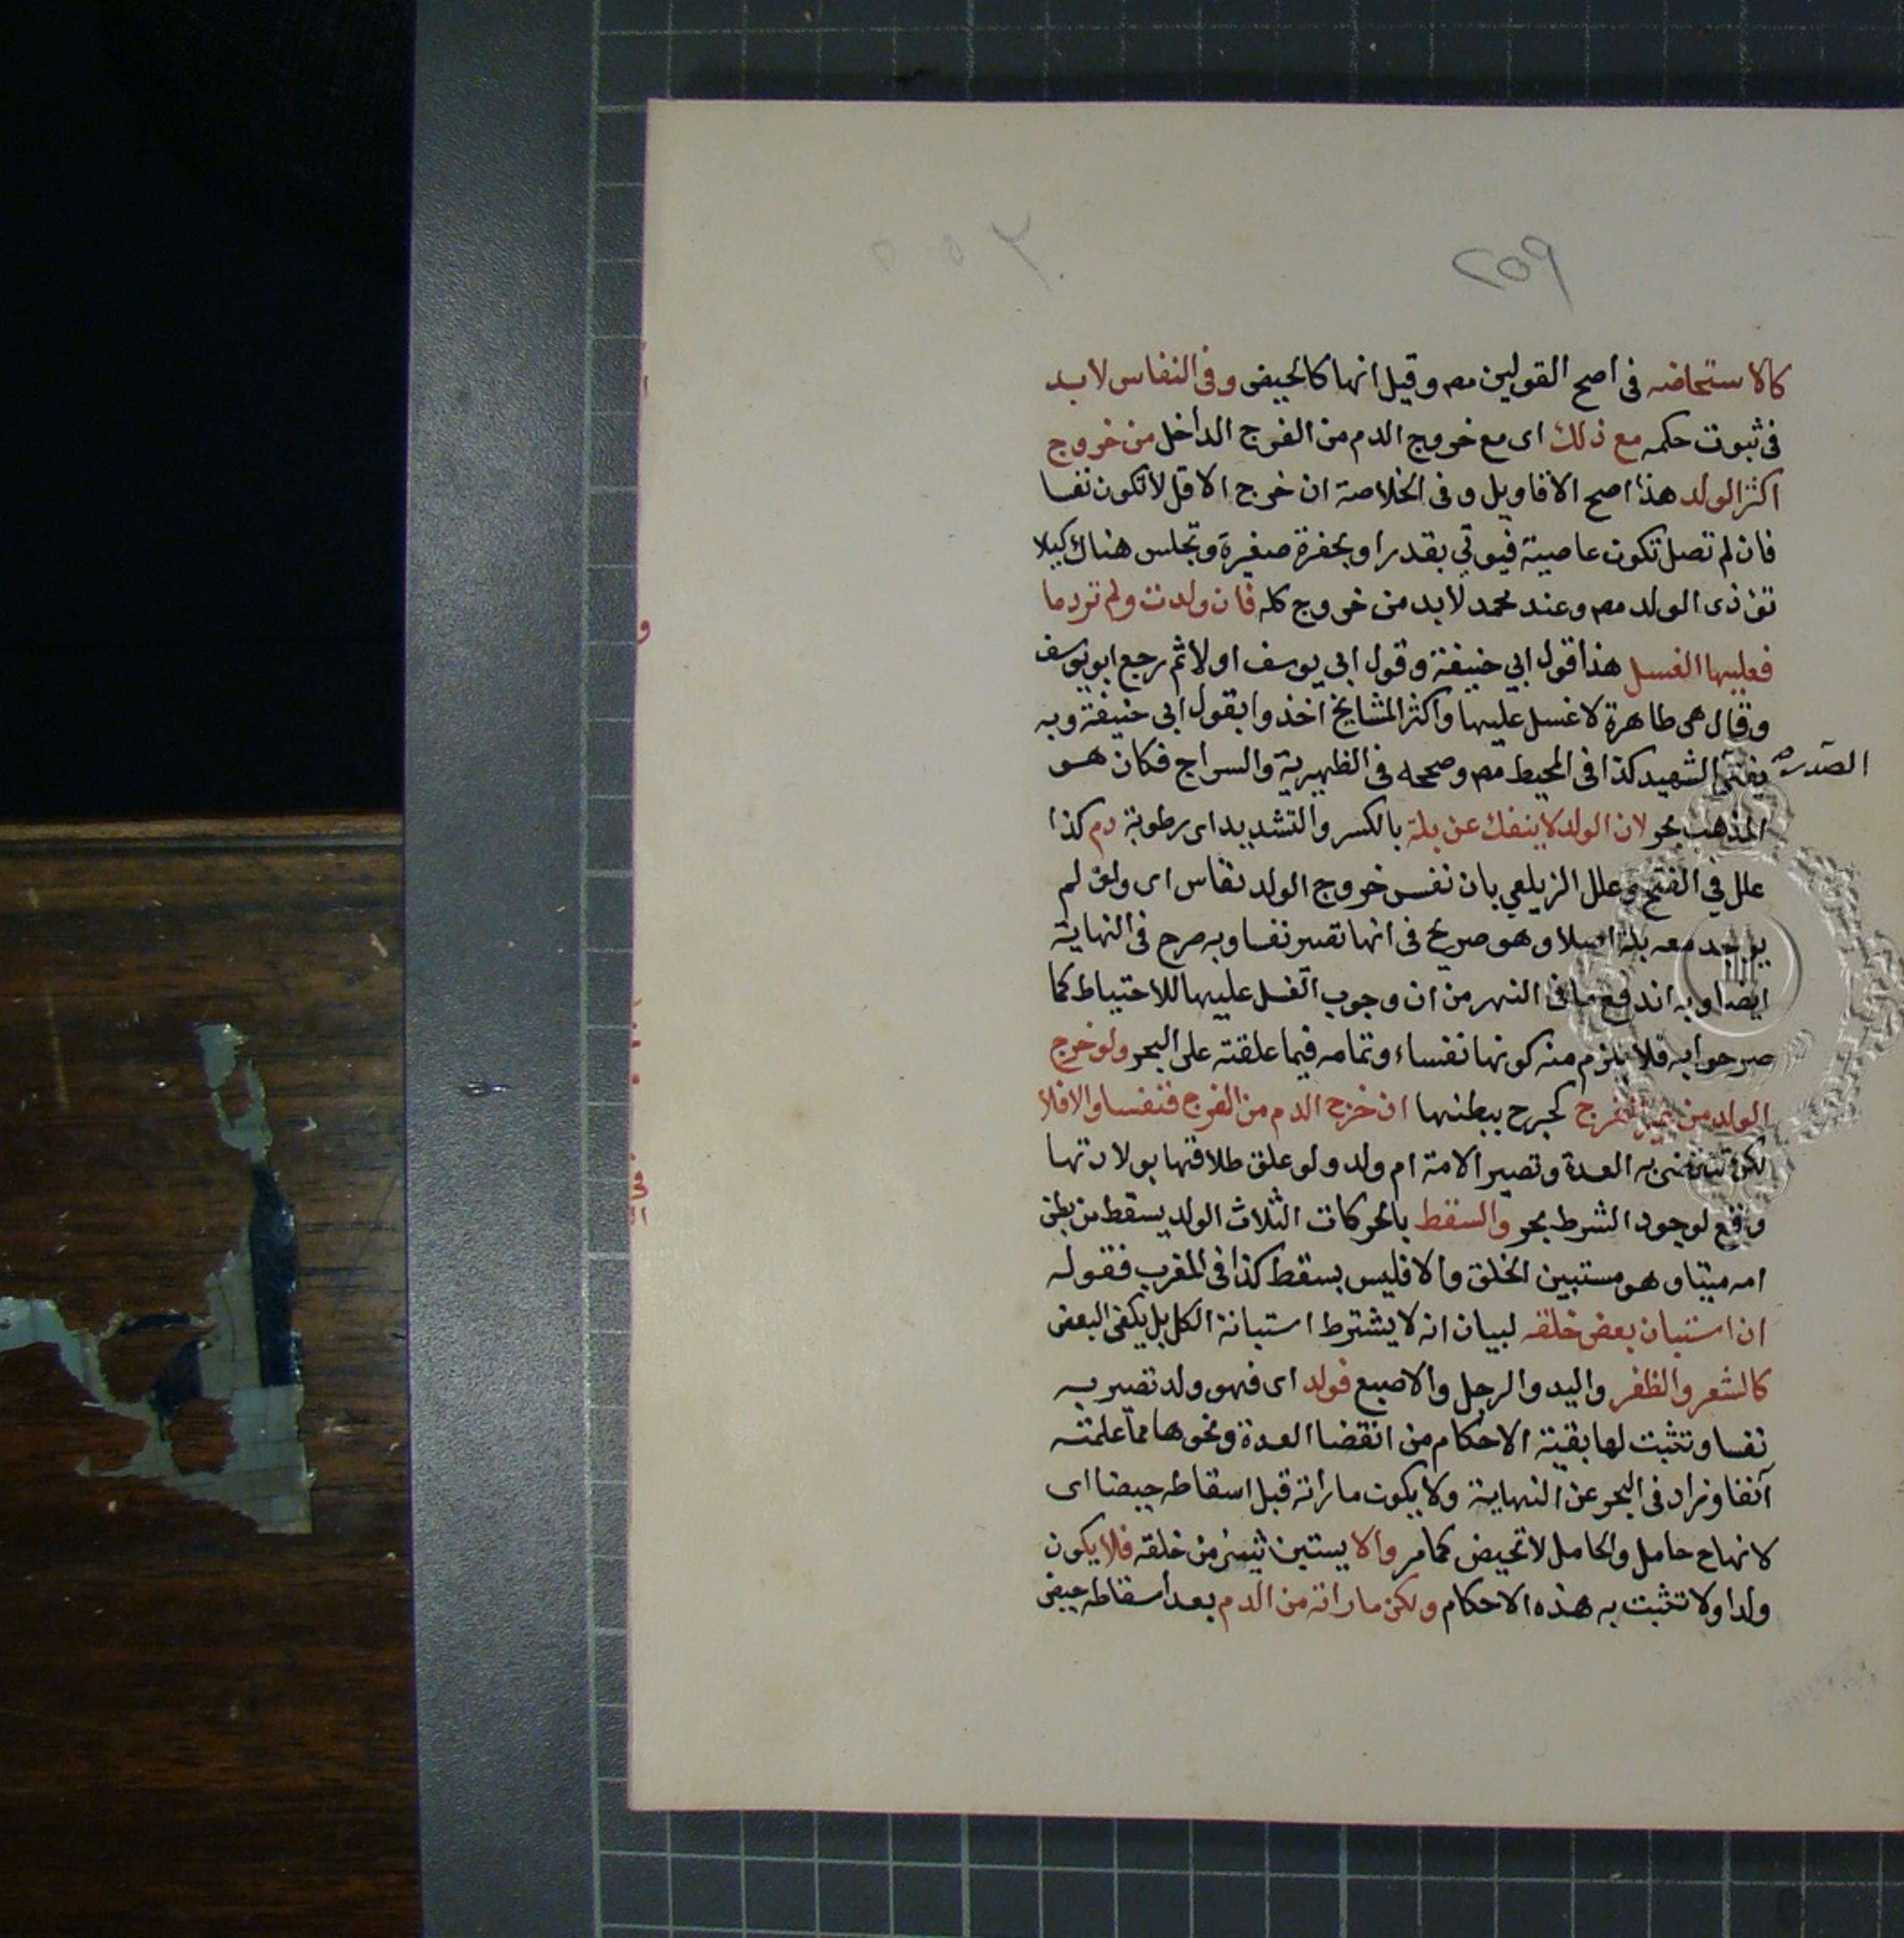 ٢٥٩
كالاستحاضه فى اصح القولين مصه وقيل انها كالحيض وفى النفاس لا بد
فى ثبوت حكمه مع ذلك اى مع خروج الدم من الفرج الداخل من خروج
اكثر الولد هذا اصح الاقاويل وفى الخلاصة ان خرج الاقل لا تكون نفسا
فان لم تصل تكون عاصية فيوتي بقدر او بحفرة صغيرة وتجلس هناك كيلا
تؤذى الولد مصه وعند محمد لا بد من خروج كله فان ولدت ولم تر دما
فعليها الغسل هذا قول ابي حنيفة وقول ابى يوسف اولا ثم رجع ابو يوسف
وقال هى طاهرة لا غسل عليها واكثر المشايخ اخذوا بقول ابى حنيفة وبه
يفتى الصدر الشهيد كذا فى المحيط مصه وصححه فى الظهيرية والسراج فكان هو
المذهب بحر لان الولد لا ينفك عن بلة بالكسر والتشديد اى رطوبة دم كذا
علل في الفتح وعلل الزيلعي بان نفس خروج الولد نفاس اى ولو لم
يوجد معه بلة اصلا وهو صريح فى انها تصير نفسا وبه صرح فى النهاية
ايضا وبه اندفع ما فى النهر من ان وجوب الغسل عليها للاحتياط كما
صرحوا به فلا يلزم منه كونها نفساء وتمامه فيما علقته على البحر ولو خرج
الولد من غير الفرج كجرح ببطنها ان خرج الدم من الفرج فنفسا والا فلا
لكن تنقضى به العدة وتصير الامة ام ولد ولو علق طلاقها بولادتها
وقع لوجود الشرط بحر والسقط بالحركات الثلاث الولد يسقط من بطن
امه ميتا وهو مستبين الخلق والا فليس بسقط كذا فى المغرب فقوله
ان استبان بعض خلقه لبيان انه لا يشترط استبانة الكل بل يكفى البعض
كالشعر والظفر واليد والرجل والاصبع فولد اى فهو ولد تصير به
نفسا وتثبت لها بقية الاحكام من انقضا العدة ونحوها مما علمته
آنفا وزاد فى البحر عن النهاية ولا يكون ما رأته قبل اسقاطه حيضا اى
لانها ح حامل والحامل لا تحيض كما مر والا يستبن شيئ من خلقه فلا يكون
ولدا ولا تثبت به هذه الاحكام ولكن ما راته من الدم بعد اسقاطه حيض